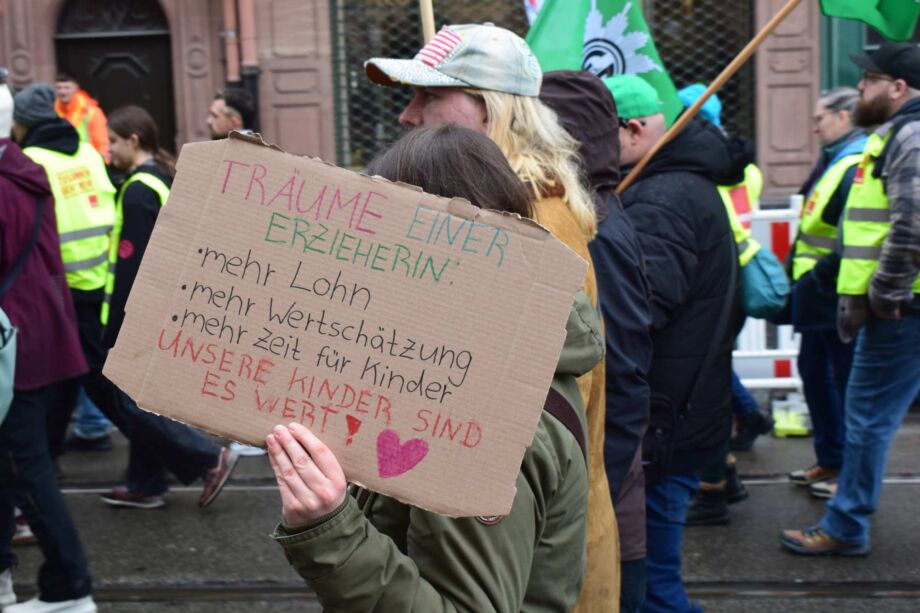 TRÄUME EINER
ERZIEHERIN:
• mehr Lohn
• mehr Wertschätzung
• mehr Zeit für Kinder
UNSERE KINDER SIND
ES WERT!